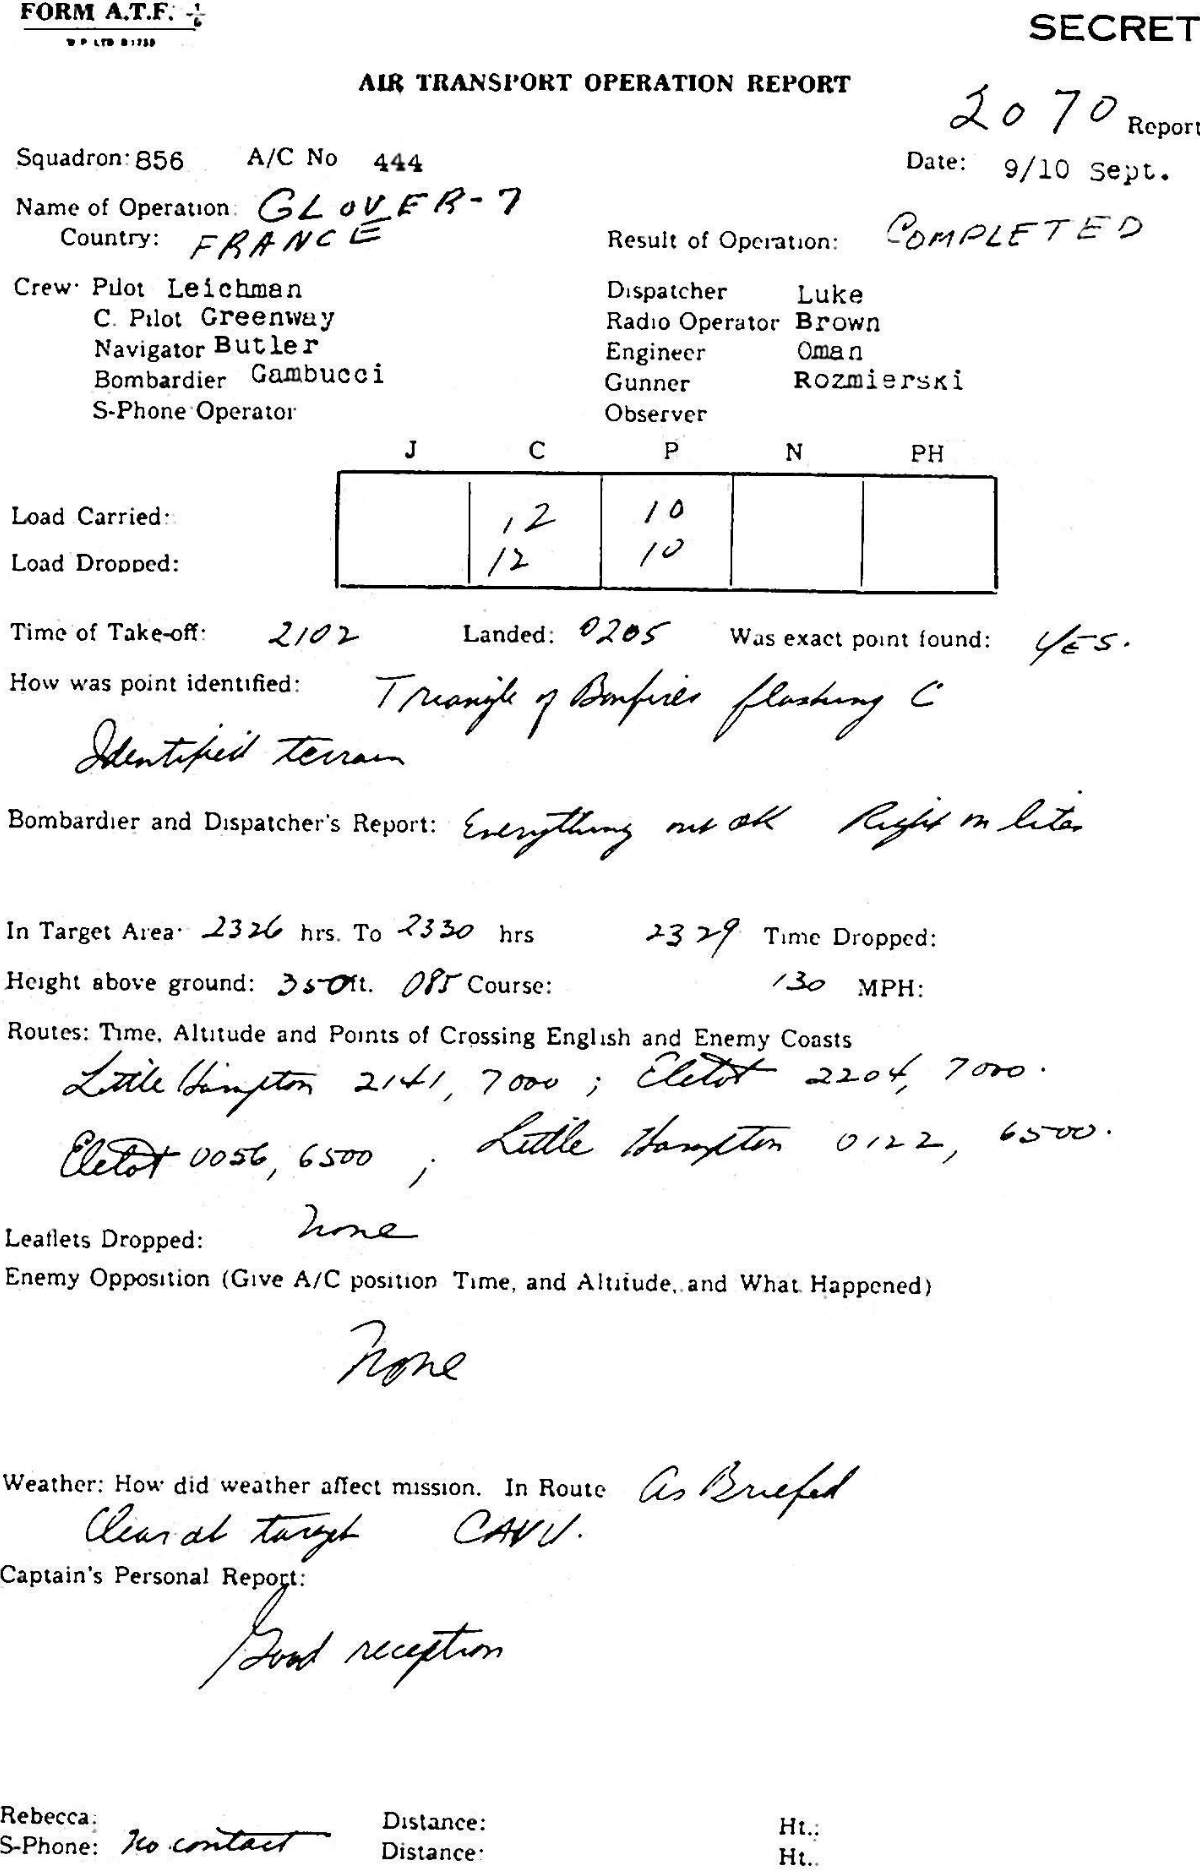 FORM A.T.F. 1/6
W P LTD
SECRET
AIR TRANSPORT OPERATION REPORT
2070 Report
Squadron: 856 A/C No 444 Date: 9/10 Sept.
Name of Operation: GLOVER-7
Country: FRANCE Result of Operation: COMPLETED
Crew: Pilot Leichman Dispatcher Luke
C. Pilot Greenway Radio Operator Brown
Navigator Butler Engineer Oman
Bombardier Gambucci Gunner Rozmierski
S-Phone Operator Observer
J C P N PH
Load Carried: 12 10
Load Dropped: 12 10
Time of Take-off: 2102 Landed: 0205 Was exact point found: YES.
How was point identified: Triangle of Bonfires flashing C
Identified terrain
Bombardier and Dispatcher's Report: Everything out ok Right on lites
In Target Area: 2326 hrs. To 2330 hrs 2329 Time Dropped:
Height above ground: 350 ft. 085 Course: 130 MPH:
Routes: Time, Altitude and Points of Crossing English and Enemy Coasts
Little Hampton 2141, 7000 ; Eletot 2204, 7000.
Eletot 0056, 6500 ; Little Hampton 0122, 6500.
Leaflets Dropped: None
Enemy Opposition (Give A/C position Time, and Altitude, and What Happened)
None
Weather: How did weather affect mission. In Route As Briefed
Clear at target CAVU.
Captain's Personal Report:
Good reception
Rebecca: Distance: Ht.:
S-Phone: No contact Distance: Ht.: